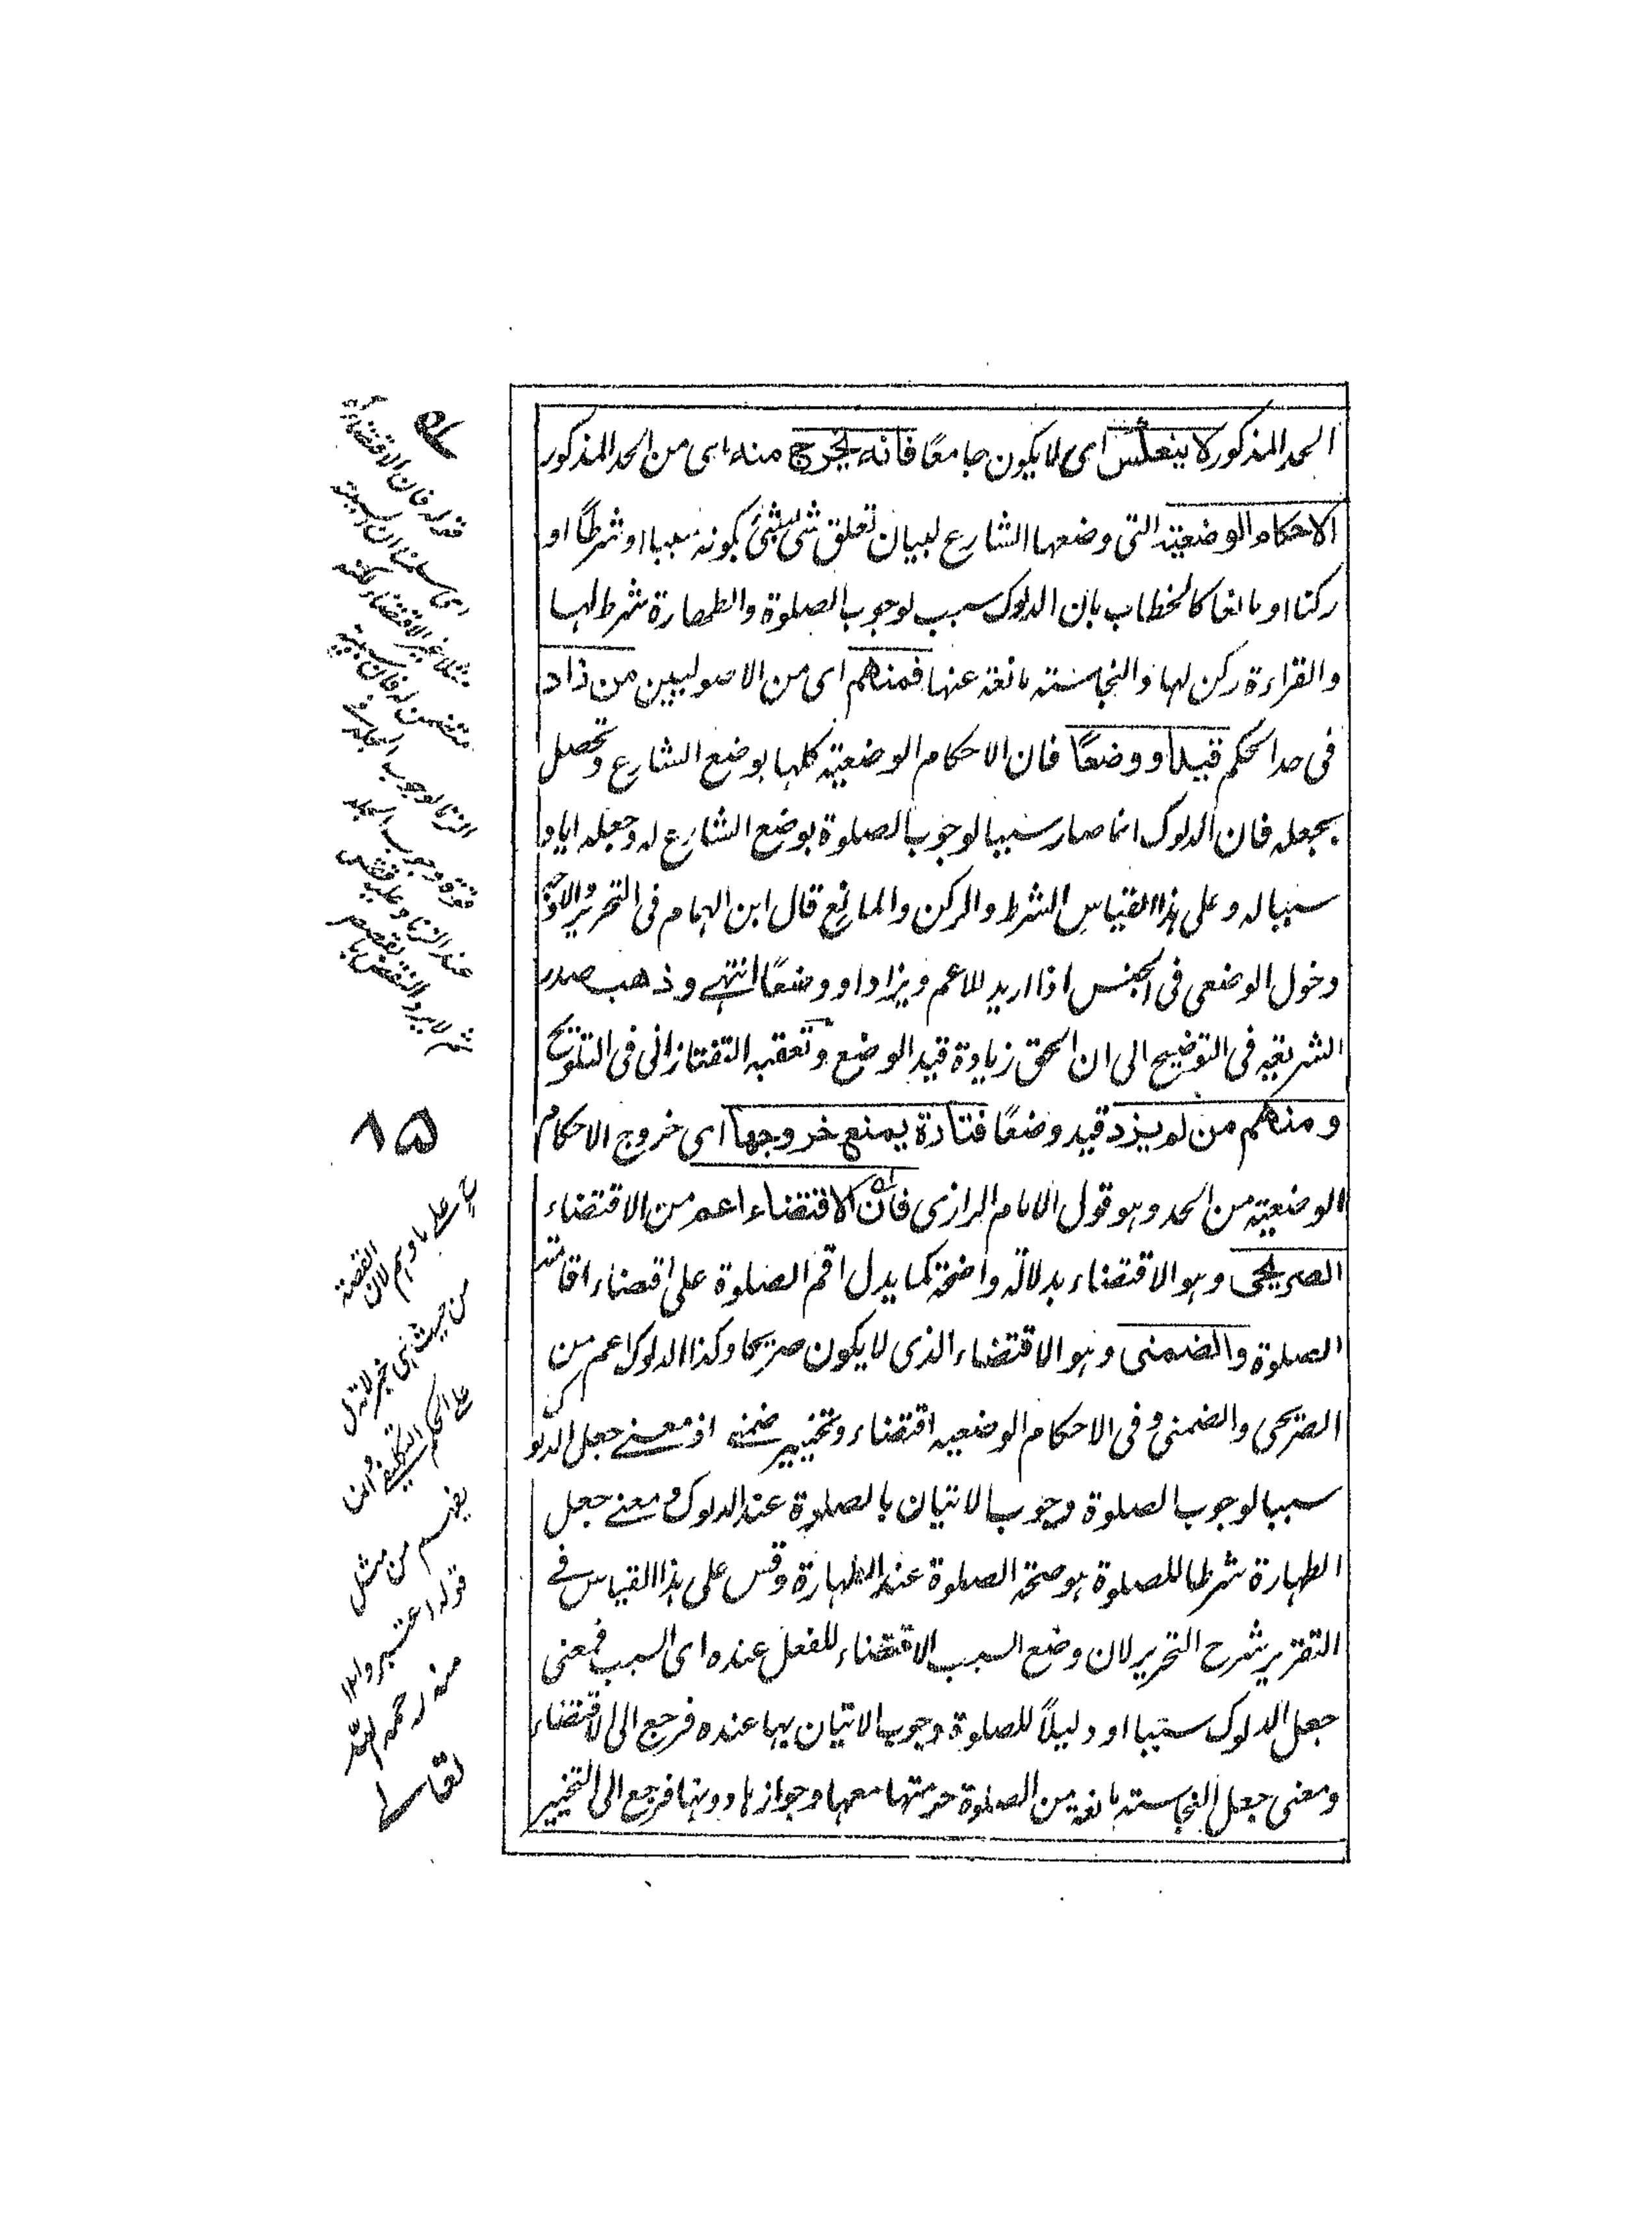 الحد المذكور لا ينعكس اى لا يكون جامعًا فانه يخرج منه اى من الحد المذكور
الاحكام الوضعية التى وضعها الشارع لبيان تعلق شئ بشئ بكونه سببا او شرطًا او
ركنا او مانعا كالخطاب بان الدلوك سبب لوجوب الصلوة والطهارة شرط لها
والقراءة ركن لها والنجاسته مانعة عنها فمنهم اى من الاصوليين من زاد
فى حد الحكم قيد او وضعًا فان الاحكام الوضعية كلها بوضع الشارع وتحصل
بجعله فان الدلوك انما صار سببا لوجوب الصلوة بوضع الشارع له وجعله اياه
سببا له وعلى هذا القياس الشرط والركن والمانع قال ابن الهمام فى التحرير والاوجه
دخول الوضعى فى الجنس اذا اريد للاعم ويزاد او وضعًا انتهے وذهب صدر
الشريعة فى التوضيح الى ان الحق زيادة قيد الوضع وتعقبه التفتازانى فى التلويح
ومنهم من لم يزد قيد وضعًا فتارة يمنع خروجها اى خروج الاحكام
الوضعية من الحد وهو قول الامام الرازى فان الاقتضاء اعم من الاقتضاء
الصريحى وهو الاقتضاء بدلالة واضحة كما يدل اقم الصلوة على اقتضاء اقامة
الصلوة والضمنى وهو الاقتضاء الذى لا يكون صريحا وكذا الدلوك اعم من
الصريحى والضمنى وفى الاحكام الوضعيه اقتضاء وتخيير ضمنے اذ معنے جعل الدلوك
سببا لوجوب الصلوة وجوب الاتيان بالصلوة عند الدلوك ومعنے جعل
الطهارة شرطا للصلوة هو صحة الصلوة عند الطهارة وقس على هذا القياس فے
التقرير شرح التحرير لان وضع السبب الاقتضاء للفعل عنده اى السبب فمعنى
جعل الدلوك سببا او دليلاً للصلوة وجوب الاتيان بها عنده فرجع الى الاقتضاء
ومعنى جعل النجاسته مانعة من الصلوة حرمتها معها وجوازها دونها فرجع الى التخيير
قوله فان الاقتضاء
الزنا لوجوب الجلد
١٥
من حيث هى خبر لا تدل
من مثل
قوله اعتبروا
منه رحمه الله
تعالے